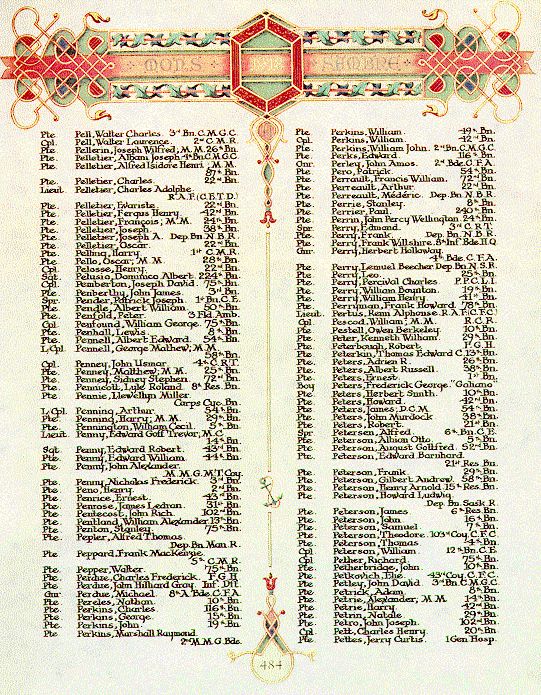 MONS 1918 SAMBRE
Pte. Pell, Walter Charles. 3rd Bn. C.M.G.C.
Cpl. Pell, Walter Laurence. 2nd C.M.R.
Pte. Pellerin, Joseph Wilfred, M.M. 26th Bn.
Pte. Pelletier, Albani Joseph 4th Bn C.M.G.C
Pte. Pelletier, Alfred Isidore Henri, M.M.
87th Bn.
Pte. Pelletier, Charles 22nd Bn.
Lieut. Pelletier, Charles Adolphe
R.A.F. (C.E.T.D.)
Pte. Pelletier, Evariste 22nd Bn.
Pte. Pelletier, Fergus Henry 42nd Bn.
Pte. Pelletier, François, M.M. 24th Bn.
Pte. Pelletier, Joseph 38th Bn.
Pte. Pelletier, Joseph A. Dep. Bn. N.B.R.
Pte. Pelletier, Oscar 22nd Bn.
Pte. Pelling, Harry 1st C.M.R.
Pte. Pello, Oscar, M.M. 28th Bn.
Cpl. Pelosse, Henry 22nd Bn.
Sgt. Pelusia, Dominico Albert 224th Bn.
Cpl. Pemberton, Joseph David 75th Bn.
Pte. Penberthy, John James 3rd Bn.
Spr. Pender, Patrick Joseph 1st Bn. C.E.
Pte. Pendle, Albert William 50th Bn.
Pte. Penfold, Peter 3 Fld. Amb.
Cpl. Penfound, William George 75th Bn.
Pte. Penhall, Lewis 8th Bn.
Pte. Pennell, Albert Edward 54th Bn.
L/Cpl. Pennell, George Mathew, M.M.
58th Bn.
Cpl. Penney, John Usmer 4th C.R.T
Pte. Penney, Matthew, M.M. 25th Bn.
Pte. Penney, Sidney Stephen 72nd Bn.
Pte. Pennicott, Leslie Roland 8th Res. Bn.
Pte. Pennie, Llewellyn Miller
Corps Cyc. Bn.
L/Cpl. Penning, Arthur 54th Bn.
Pte. Penning, Harry, M.M. 29th Bn.
Pte. Pennington, William Cecil 5th Bn.
Lieut. Penny, Edward Goff Trevor, M.C.
14th Bn.
Sgt. Penny, Edward Robert 43rd Bn.
Pte. Penny, Edward William 44th Bn.
Pte. Penny, John Alexander
M.M.G. M.T. Coy.
Pte. Penny, Nicholas Frederick 3rd Bn.
Pte. Peno, Henry 2nd Bn.
Pte. Penrice, Ernest 43rd Bn.
Pte. Penrose, James Ledran 31st Bn.
Pte. Pentecost, John Rich 102nd Bn.
Pte. Pentland, William Alexander 13th Bn.
Pte. Penton, Stanley 75th Bn.
Pte. Pepler, Alfred Thomas
Dep. Bn. Man. R.
Pte. Peppard, Frank MacKenzie
5th C.M.R.
Pte. Pepper, Walter 75th Bn.
Pte. Perdue, Charles Frederick F.G.H.
Pte. Perdue, John Hilliard Gray Inf. Dft.
Gnr. Perdue, Michael 8th A. Bde. C.F.A
Pte. Pereles, Nathan 10th Bn.
Pte. Perkins, Charles 116th Bn.
Pte. Perkins, George 15th Bn.
Pte. Perkins, John 19th Bn.
Pte. Perkins, Marshall Raymond
2nd M.M.G. Bde.
Pte. Perkins, William 49th Bn.
Cpl. Perkins, William 42nd Bn.
Pte. Perkins, William John 2nd Bn. C.M.G.C.
Pte. Perks, Edward 116th Bn.
Gnr. Perley, John Amos 2nd Bde. C.F.A.
Pte. Pero, Patrick 54th Bn.
Pte. Perrault, Francis William 72nd Bn.
Pte. Perreault, Arthur 22nd Bn.
Pte. Perreault, Médéric Dep. Bn. N.B.R.
Pte. Perrie, Stanley 8th Bn.
Pte. Perrier, Paul 240th Bn.
Pte. Perrin, John Percy Wellington 24th Bn.
Spr. Perry, Edmund 3rd C.R.T.
Pte. Perry, Frank Dep. Bn. N.B.R.
Pte. Perry, Frank Willshire 8th Inf. Bde. H.Q.
Gnr. Perry, Herbert Holloway
4th Bde. C.F.A.
Pte. Perry, Lemuel Beecher Dep. Bn. N.S.R.
Pte. Perry, Leo 25th Bn.
Pte. Perry, Percival Charles P.P.C.L.I.
Pte. Perry, William Boynton 19th Bn.
Pte. Perry, William Henry 41st Bn.
Pte. Perryman, Frank Howard 78th Bn.
Lieut. Pertus, Remi Alphonse R.A.F. (C.F.C.)
Cpl. Pescod, William, M.M. R.C.R.
Pte. Pestell, Owen Berkeley 10th Bn.
Pte. Peter, Kenneth William 29th Bn.
Pte. Peterbough, Robert F.G.H.
Pte. Peterkin, Thomas Edward C. 13th Bn.
Pte. Peters, Adrien R. 26th Bn.
Pte. Peters, Albert Russell 38th Bn.
Pte. Peters, Ernest 1st Bn.
Boy Peters, Frederick George "Galiano"
Pte. Peters, Herbert Smith 10th Bn.
Pte. Peters, Howard 42nd Bn.
Pte. Peters, James, D.C.M. 54th Bn.
Pte. Peters, John Murdock 38th Bn.
Pte. Peters, Robert 21st Bn.
Spr. Petersen, Alfred 6th Bn. C.E.
Pte. Peterson, Albion Otto 5th Bn.
Pte. Peterson, August Gotfred 52nd Bn.
Pte. Peterson, Edward Barnhard
21st Res. Bn.
Pte. Peterson, Frank 29th Bn.
Pte. Peterson, Gilbert Andrew 58th Bn.
Pte. Peterson, Henry Arnold 15th Res. Bn.
Pte. Peterson, Howard Ludwig
Dep. Bn. Sask. R.
Pte. Peterson, James 6th Res. Bn.
Pte. Peterson, John 16th Bn.
Pte. Peterson, Samuel 7th Bn.
Pte. Peterson, Theodore 103rd Coy. C.F.C.
Pte. Peterson, Thomas 4th Bn.
Cpl. Peterson, William 12th Bn. C.E.
Cpl. Pether, Richard 75th Bn.
Pte. Petherbridge, John 10th Bn.
Pte. Petkovich, Elie 43rd Coy. C.F.C.
Pte. Petley, John David 3rd Bn. C.M.G.C.
Pte. Petrick, Adam 8th Bn.
Pte. Petrie, Alexander, M.M. 14th Bn.
Pte. Petrie, Harry 42nd Bn.
Pte. Petrin, Natale 29th Bn.
Pte. Petro, John Joseph 102nd Bn.
Cpl. Pett, Charles Henry 20th Bn.
Pte. Pettes, Jerry Curtis 1 Gen. Hosp.
484